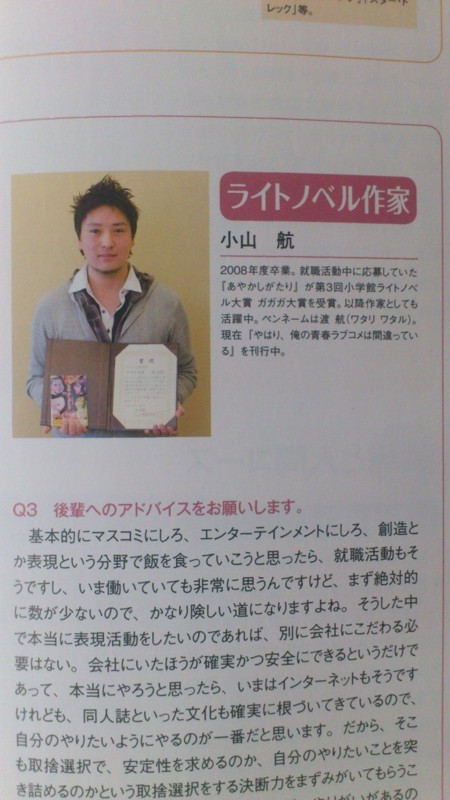 レック」等。
ライトノベル作家
小山　航
2008年度卒業。就職活動中に応募していた
『あやかしがたり』が第3回小学館ライトノベ
ル大賞 ガガガ大賞を受賞。以降作家としても
活躍中。ペンネームは渡 航(ワタリ ワタル)。
現在『やはり、俺の青春ラブコメは間違ってい
る』を刊行中。
賞状
Q3　後輩へのアドバイスをお願いします。
基本的にマスコミにしろ、エンターテインメントにしろ、創造と
か表現という分野で飯を食っていこうと思ったら、就職活動もそ
うですし、いま働いていても非常に思うんですけど、まず絶対的
に数が少ないので、かなり険しい道になりますよね。そうした中
で本当に表現活動をしたいのであれば、別に会社にこだわる必
要はない。会社にいたほうが確実かつ安全にできるというだけで
あって、本当にやろうと思ったら、いまはインターネットもそうです
けれども、同人誌といった文化も確実に根づいてきているので、
自分のやりたいようにやるのが一番だと思います。だから、そこ
も取捨選択で、安定性を求めるのか、自分のやりたいことを突
き詰めるのかという取捨選択をする決断力をまずみがいてもらうこ